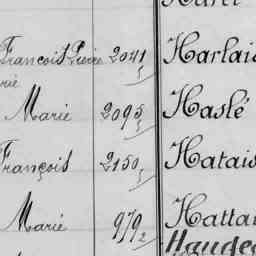 François Pierre 2041 Harlais
Marie 2095 Haslé
François 2150 Hatais
Marie 979 Hattai